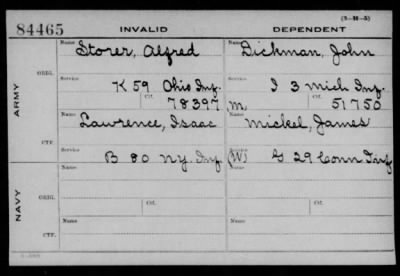 (3-10-5)
84465 INVALID DEPENDENT
Name Storer, Alfred Name Dickman, John
ORIG.
Service K 59 Ohio Inf. Service I 3 Mich Inf.
Ctf. 78397 m. Ctf. 51750
ARMY
Name Lawrence, Isaac Name Mickel, James
CTF.
Service B 80 N.Y. Inf Service (W) G 29 Conn Inf
Name Name
ORIG.
NAVY
Ctf. Ctf.
Name Name
CTF.